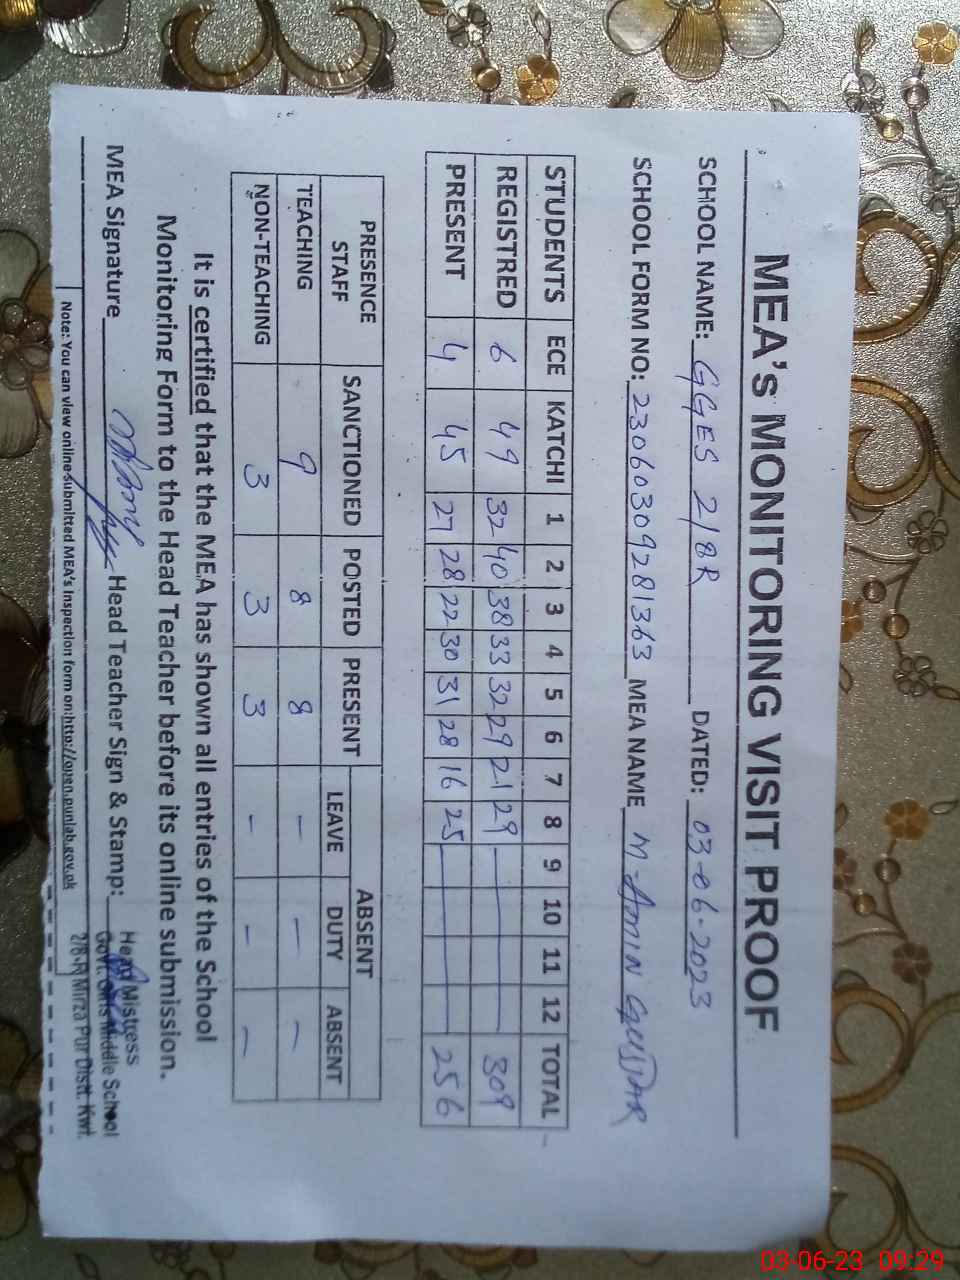 MEA's MONITORING VISIT PROOF
SCHOOL NAME: GGES 2/8R DATED: 03-06-2023
SCHOOL FORM NO: 23060309281363 MEA NAME M-AMIN GUJJAR
STUDENTS ECE KATCHI 1 2 3 4 5 6 7 8 9 10 11 12 TOTAL
REGISTRED 6 49 32 40 38 33 32 29 21 29 309
PRESENT 4 45 27 28 22 30 31 28 16 25 256
PRESENCE STAFF SANCTIONED POSTED PRESENT ABSENT
LEAVE DUTY ABSENT
TEACHING 9 8 8 - - -
NON-TEACHING 3 3 3 - - -
It is certified that the MEA has shown all entries of the School
Monitoring Form to the Head Teacher before its online submission.
MEA Signature Head Teacher Sign & Stamp:
Head Mistress
Govt. Girls Middle School
2/8-R Mirza Pur Distt. Kwl.
Note: You can view online submitted MEA's Inspection form on:http://open.punjab.gov.pk
03-06-23 09:29